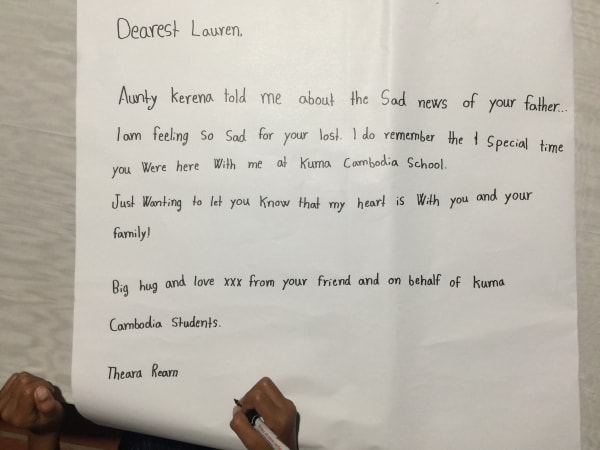 Dearest Lauren,
Aunty Kerena told me about the Sad news of your father...
I am feeling So Sad for your lost. I do remember the 1 Special time
you Were here With me at Kuma Cambodia School.
Just Wanting to let you Know that my heart is With you and your
family!
Big hug and love xxx from your friend and on behalf of Kuma
Cambodia Students.
Theara Ream